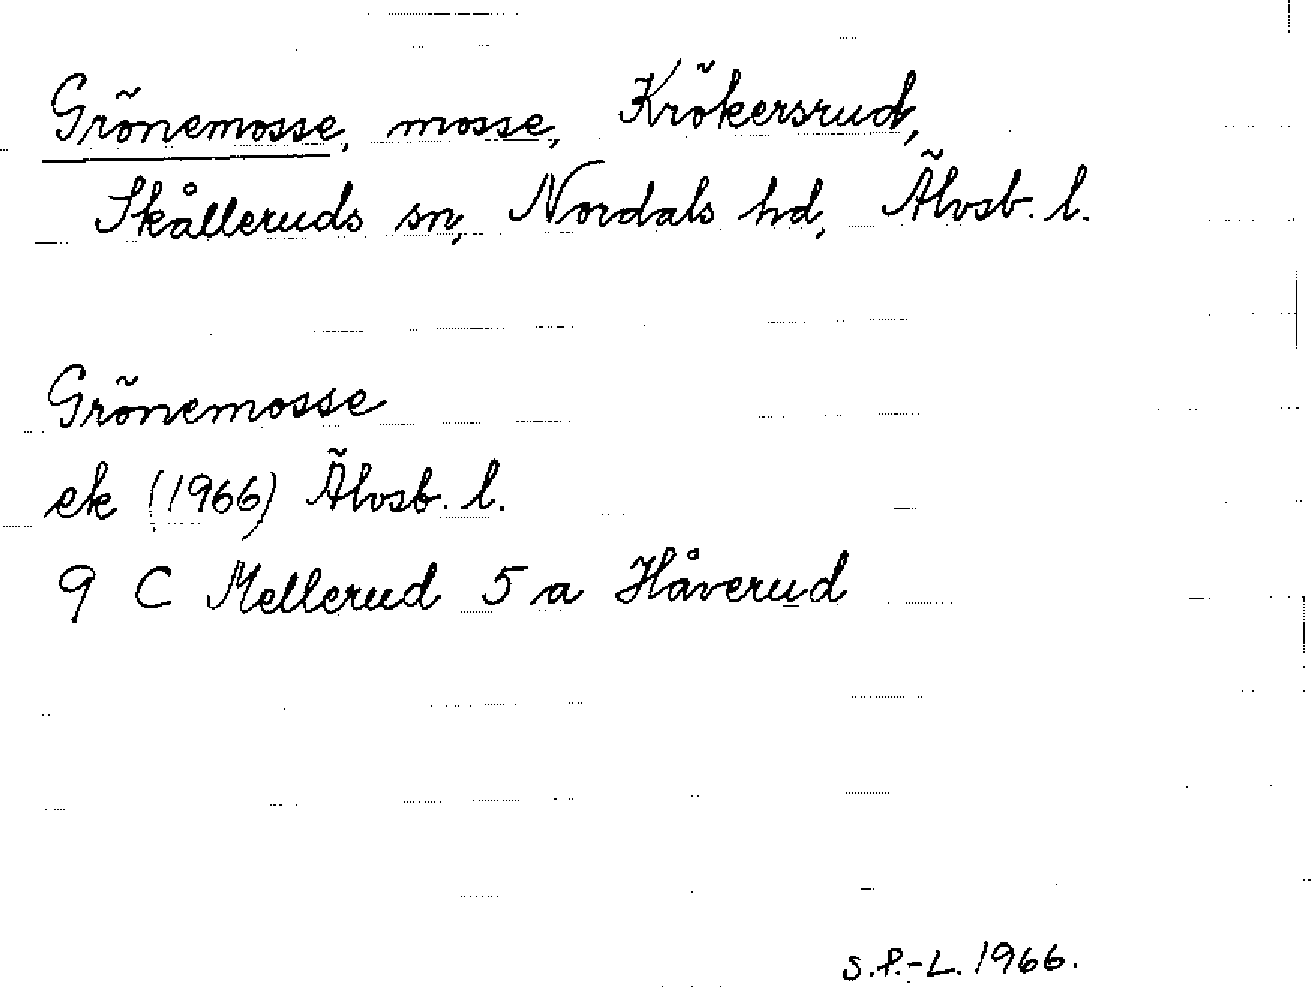 Grönemosse, mosse, Krökersrud,
Skålleruds sn, Nordals hd, Älvsb. l.
Grönemosse
ek (1966) Älvsb. l.
9 C Mellerud 5 a Håverud
S.P.-L. 1966.